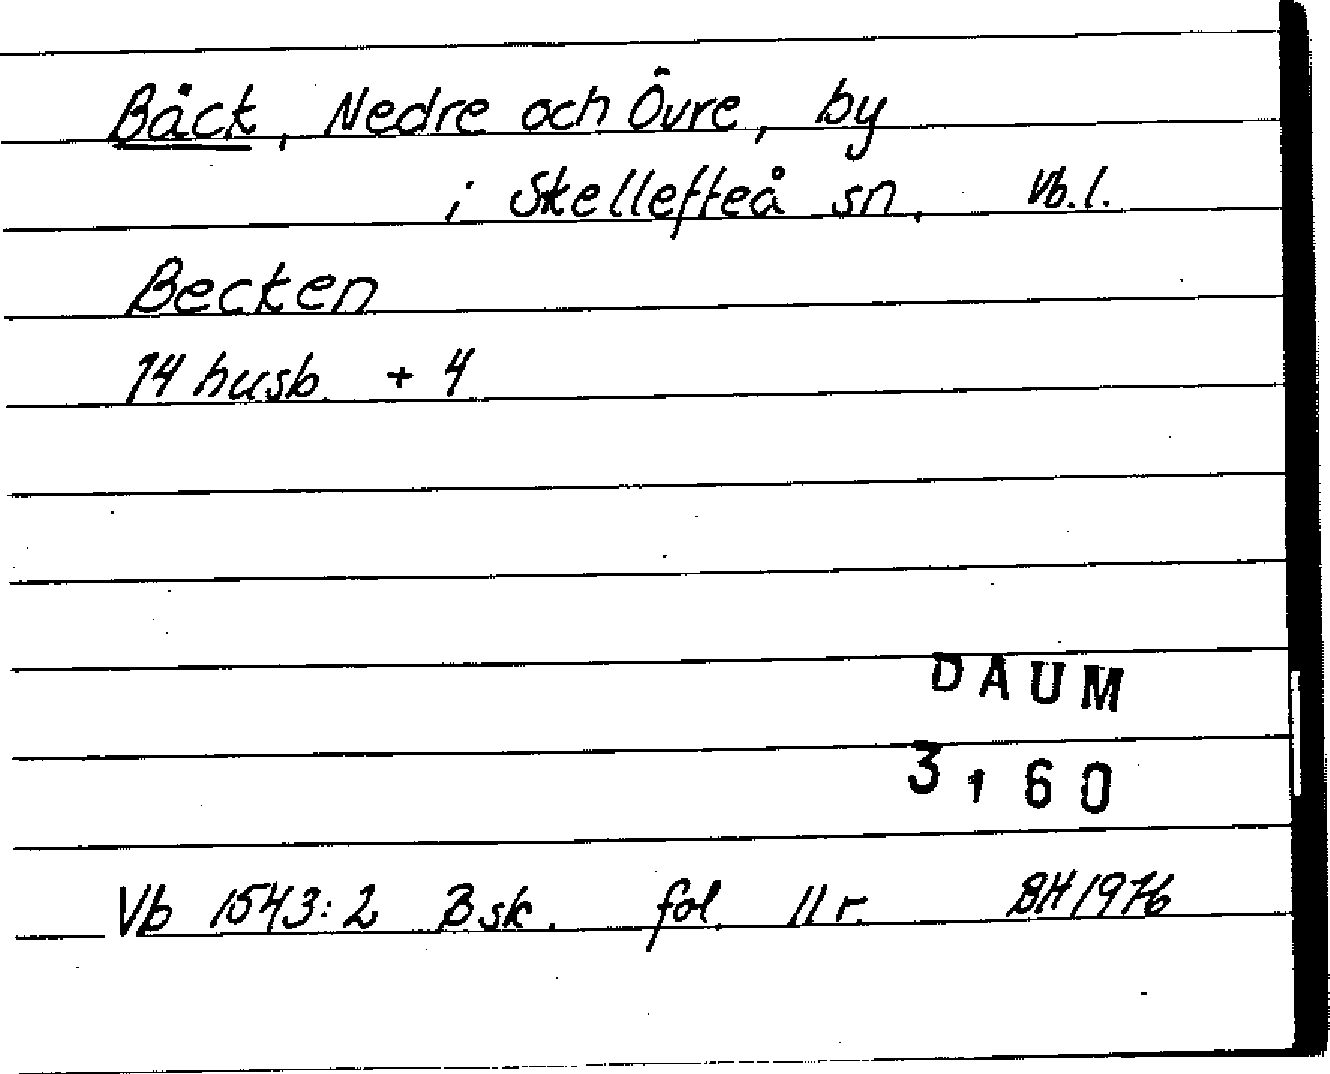 Bäck, Nedre och Övre, by
i Skellefteå sn. Vb.l.
Becken
14 husb. + 4
DAUM
3160
Vb 1543:2 Bsk. fol. 11r. BH 1976